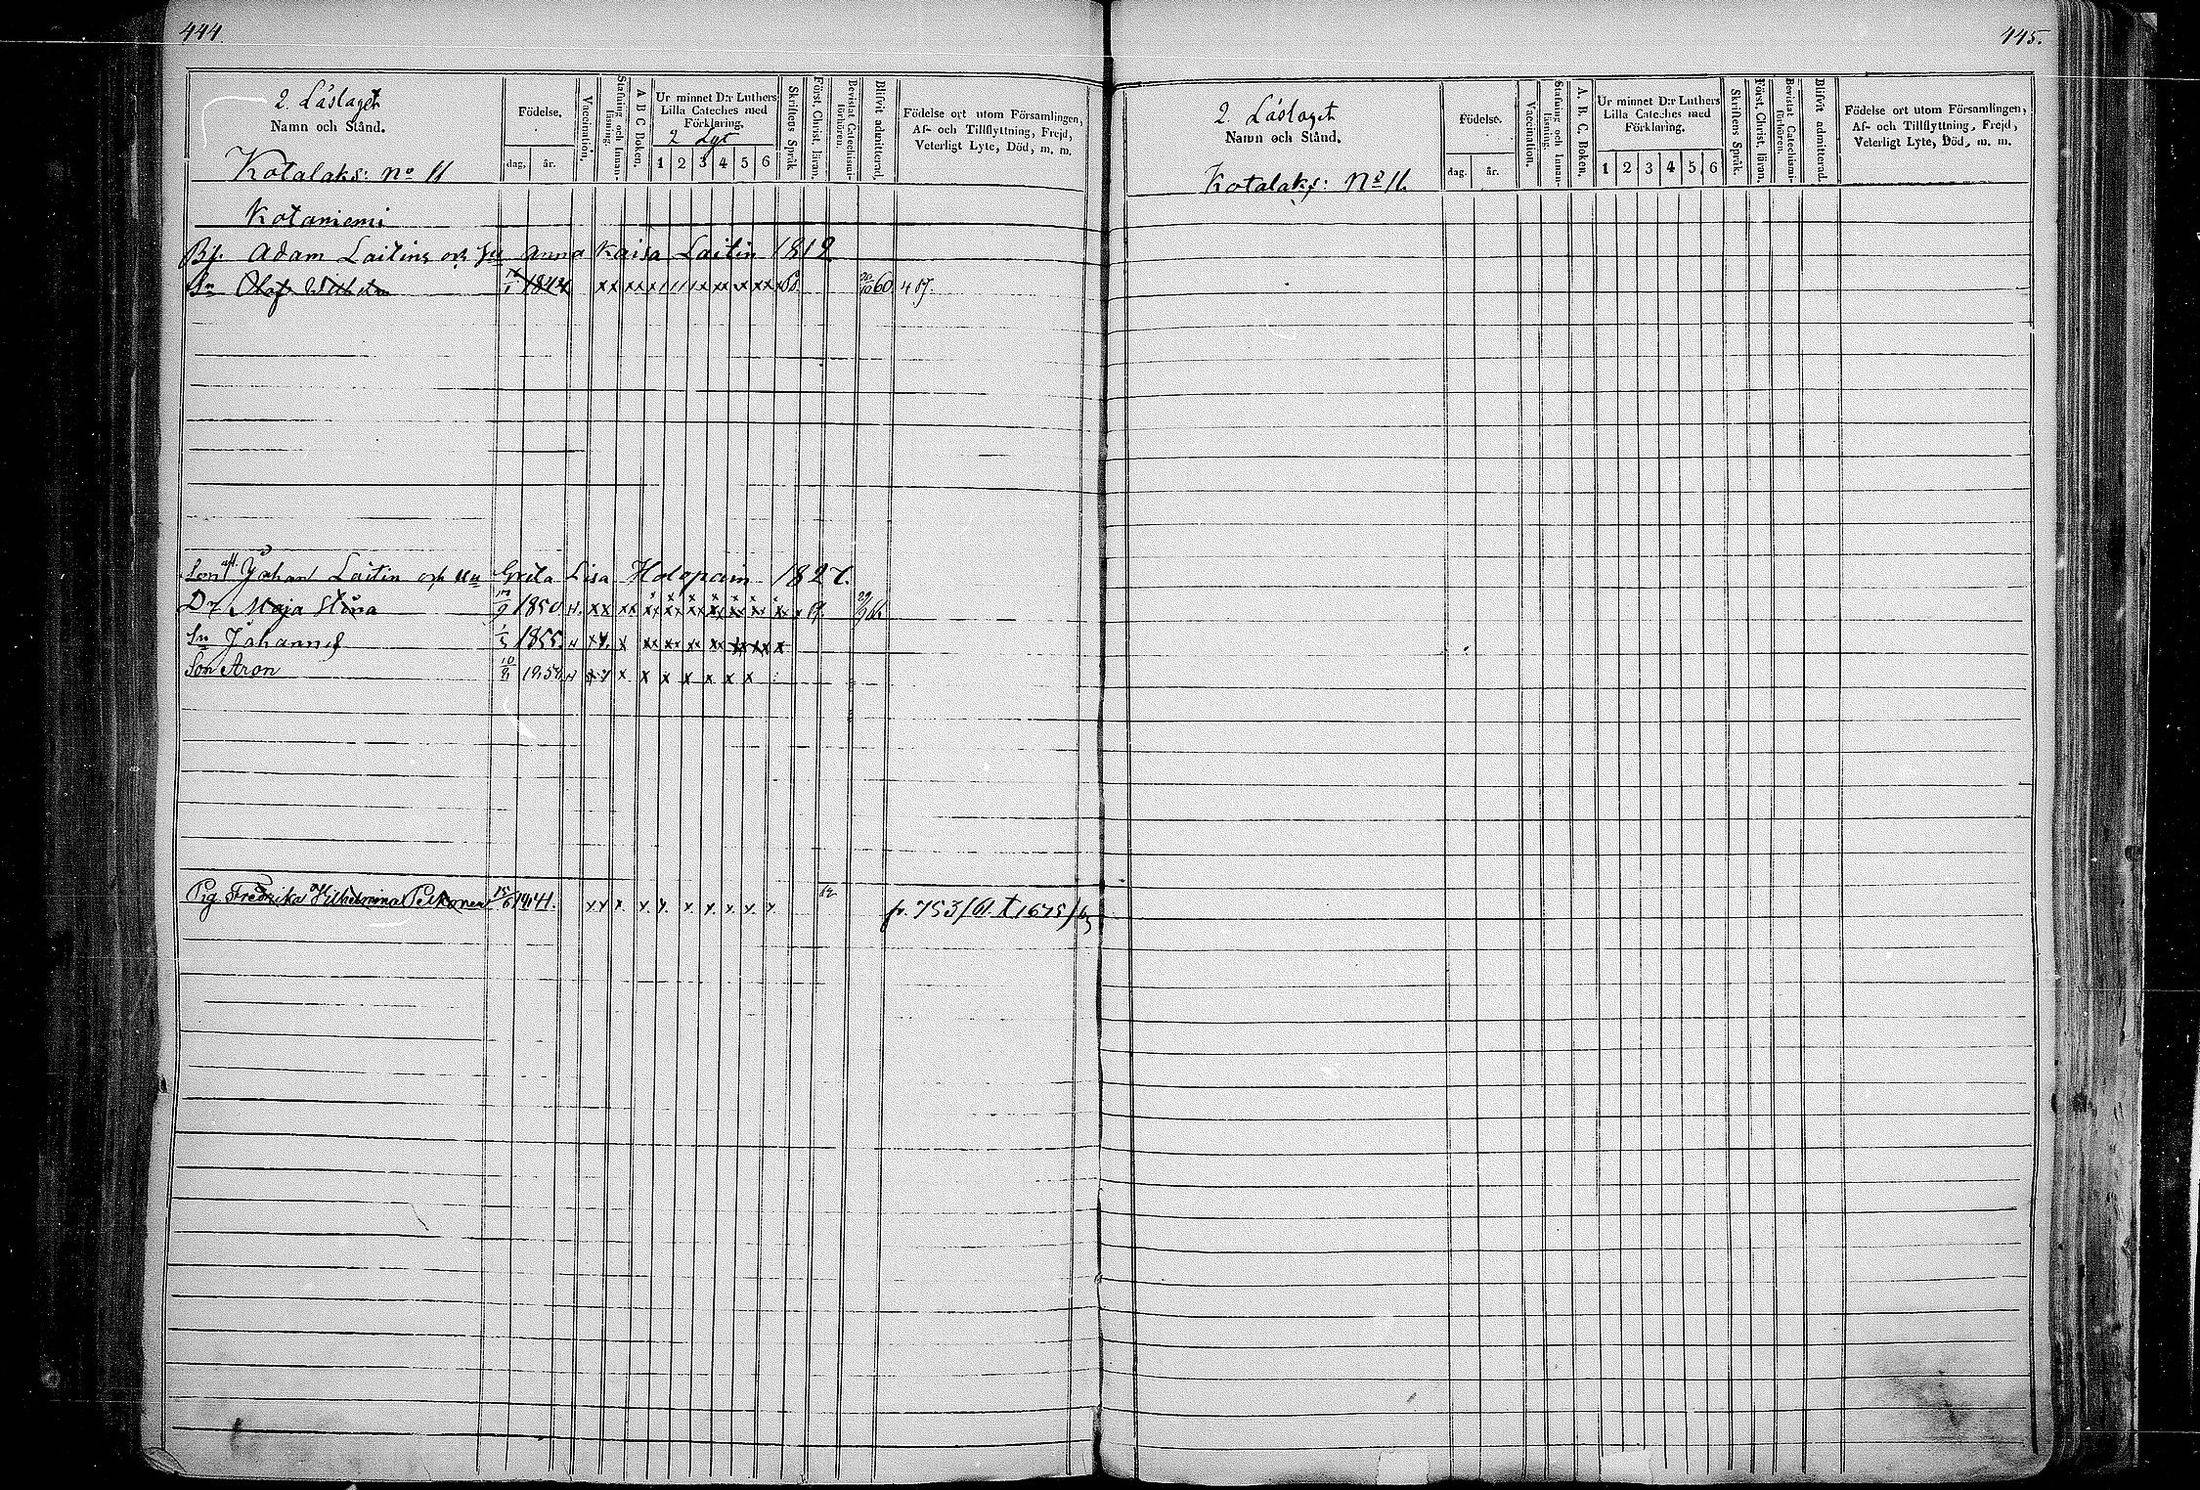 444.
2. Läslaget
Namn och Stånd.
Kotalaks: No 11
Födelse.
dag. år.
Vaccination.
Stafning och Innanläsning.
A B C Boken.
Ur minnet D:r Luthers Lilla Cateches med Förklaring.
2 Lgt
1 2 3 4 5 6
Skriftens Språk
Först. Christ. läran.
Bevistat Catechismiförhören.
Blifvit admitterad.
Födelse ort utom Församlingen, Af- och Tillflyttning, Frejd, Veterligt Lyte, Död, m. m.
Kotaniemi
Adam Laitin och hu Anna Kaisa Laitin 1812
Sn Olof Wilhelm 1844 x x x x x 60
Son Johan Laitin och hu Greta Lisa Holopain 1827.
Dr Maja Stina 9 1850 x x x x
Sn Johannes 1855 x x x
Son Aron 10 1858 x x x x x x x
Pig. Fredrika Wilhelmina Pelkonen 1841. x x x x x x x x x fr. 753/61. t 1675/
445.
2. Läslaget
Namn och Stånd.
Kotalaks: No 11.
Födelse.
dag. år.
Vaccination.
Stafning och Innanläsning.
A. B. C. Boken.
Ur minnet D:r Luthers Lilla Cateches med Förklaring.
1 2 3 4 5 6
Skriftens Språk.
Först. Christ. läran.
Bevistat Catechismiförhören.
Blifvit admitterad
Födelse ort utom Församlingen, Af- och Tillflyttning, Frejd, Veterligt Lyte, Död, m. m.